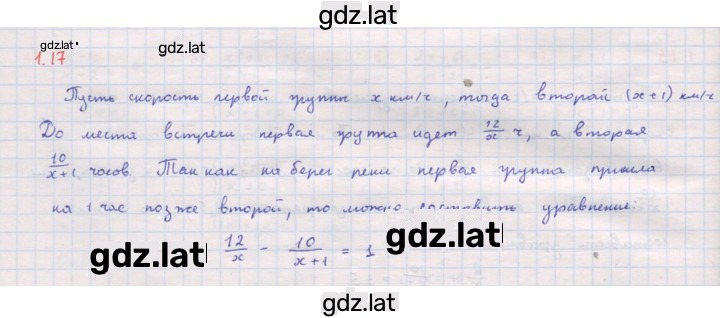 gdz.lat
gdz.lat
gdz.lat
1.17
Пусть скорость первой группы x км/ч, тогда второй (x+1) км/ч
До места встречи первая группа идет 12/x ч, а вторая
10/x+1 часов. Так как на берег реки первая группа пришла
на 1 час позже второй, то можно составить уравнение:
12/x - 10/x+1 = 1
gdz.lat
gdz.lat
gdz.lat